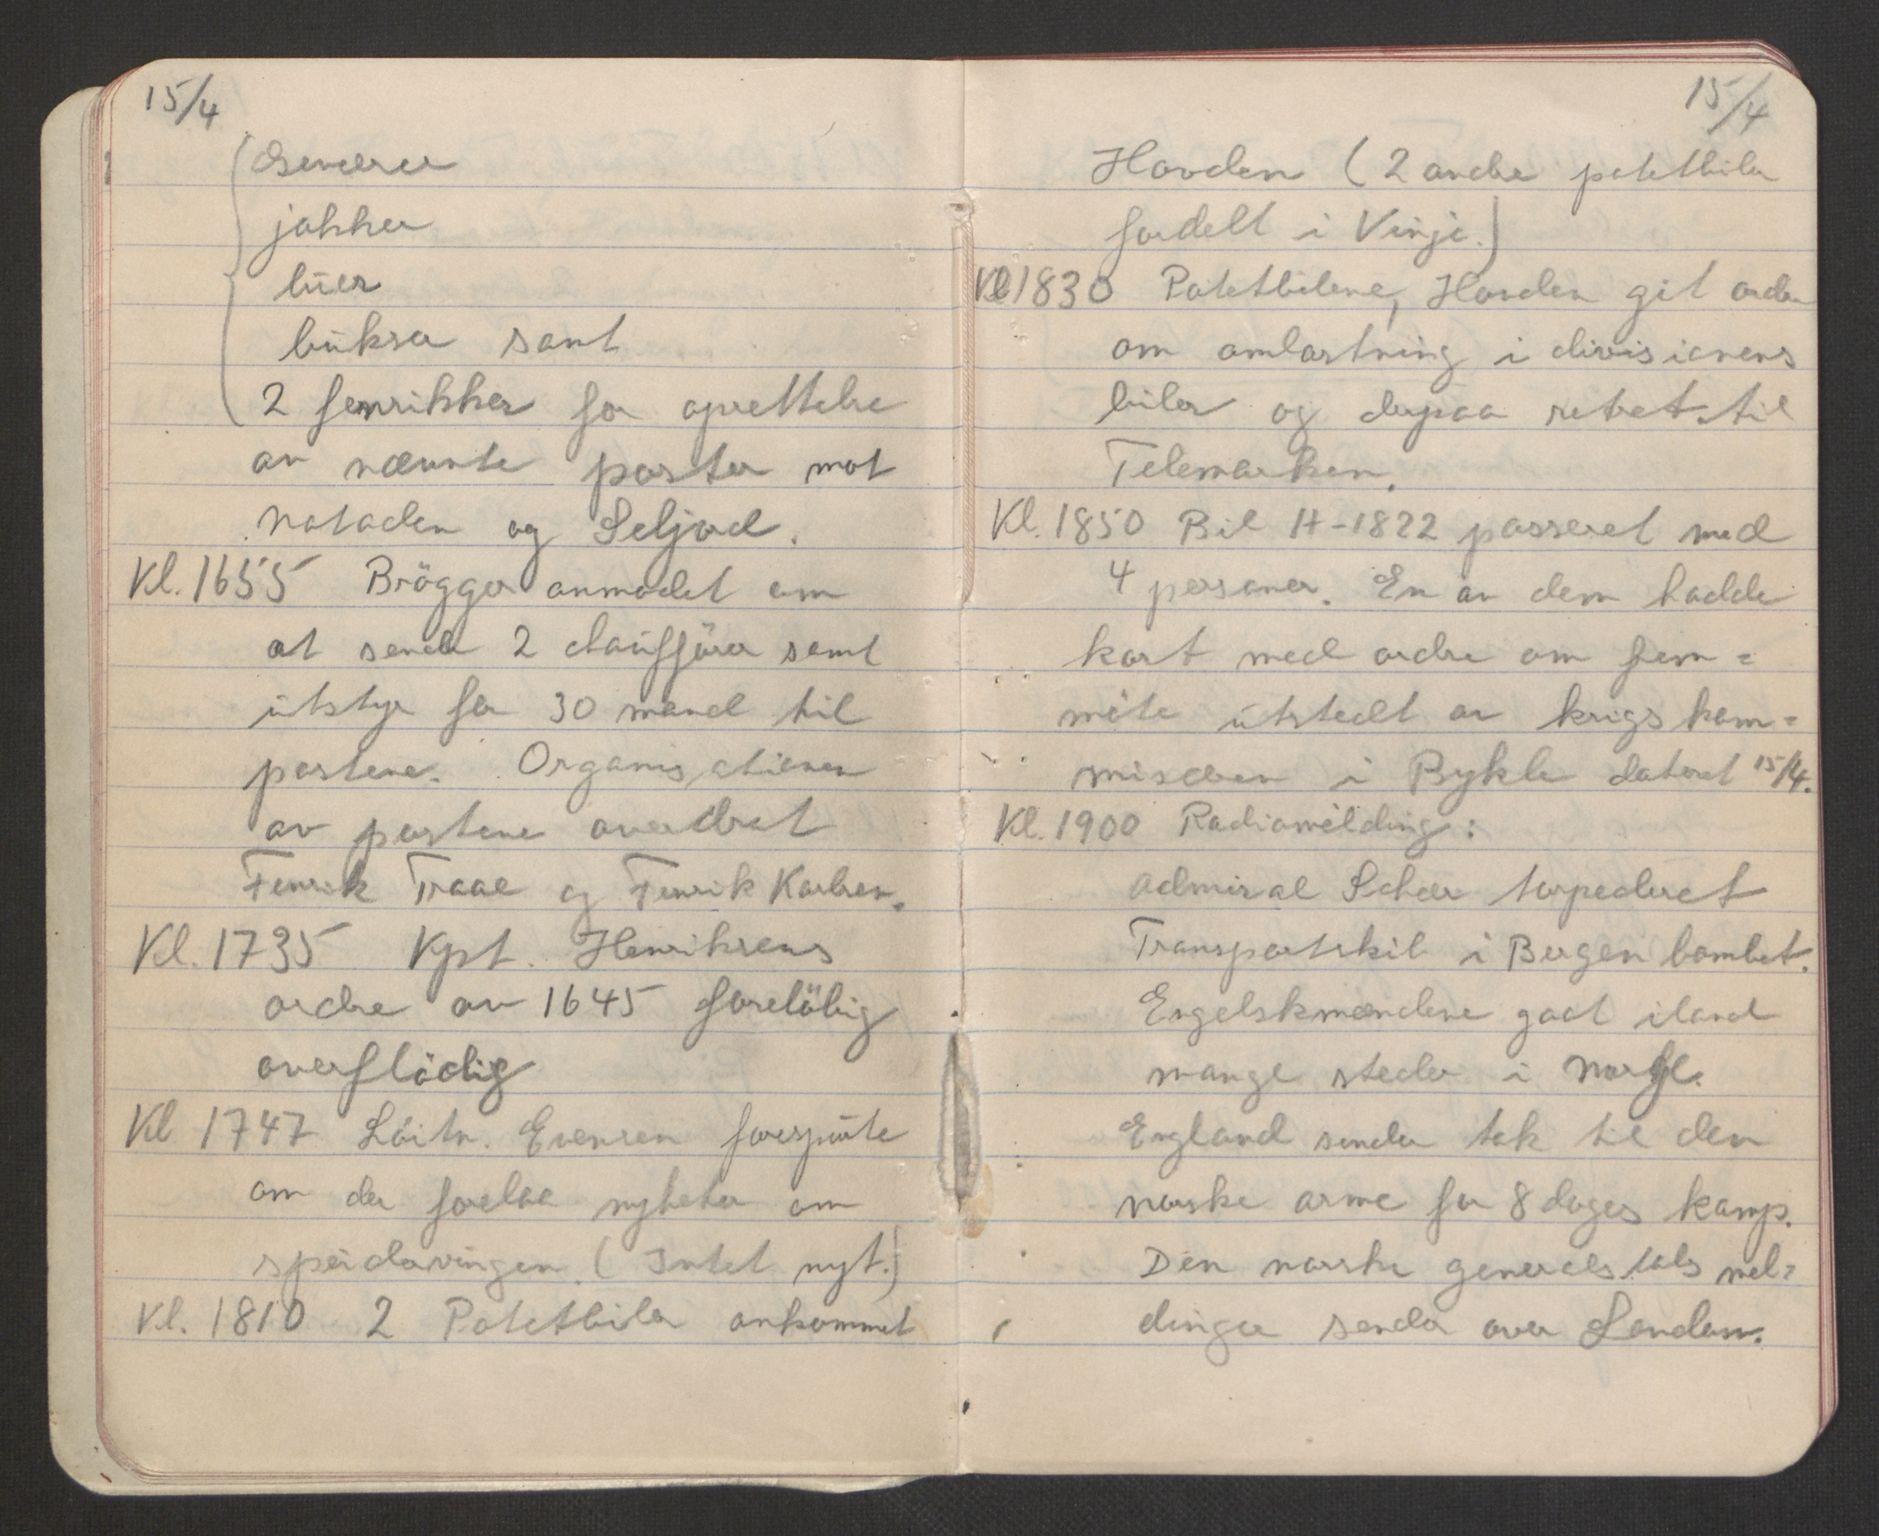 15/4
Geværer
jakker
luer
bukser samt
2 fenrikker for oprettelse
av nævnte poster mot
Notodden og Seljord.
Kl. 1655 Brögger anmodet om
at sende 2 chauffører samt
utstyr for 30 mand til
postene. Organisationen
av postene overdrat
Fenrik Traae og Fenrik Karlsen.
Kl. 1735 Kpt. Henriksens
ordre av 1645 foreløbig
overflödig
Kl 1747 Löitn. Evensen forespurte
om der forelaa nyheter om
speidervingen. (Intet nyt.)
Kl. 1810 2 Potetbiler ankommet
15/4
Hovden (2 andre potetbiler
fordelt i Vinje.)
Kl 1830 Potetbilene, Hovden git ordre
om omlastning i divisionens
biler og derpaa retret til
Telemarken.
Kl. 1850 Bil H-1822 passeret med
4 personer. En av dem hadde
kort med ordre om frem=
möte utstedt av krigskom=
misæren i Bykle dateret 15/4.
Kl. 1900 Radiomelding:
Admiral Scheer torpederet
Transportskib i Bergen bombet.
Engelskmændene gaat iland
mange steder i Norge.
England sender tak til den
norske arme for 8 dages kamp.
Den norske generalstabs mel=
dinger sendes over London.